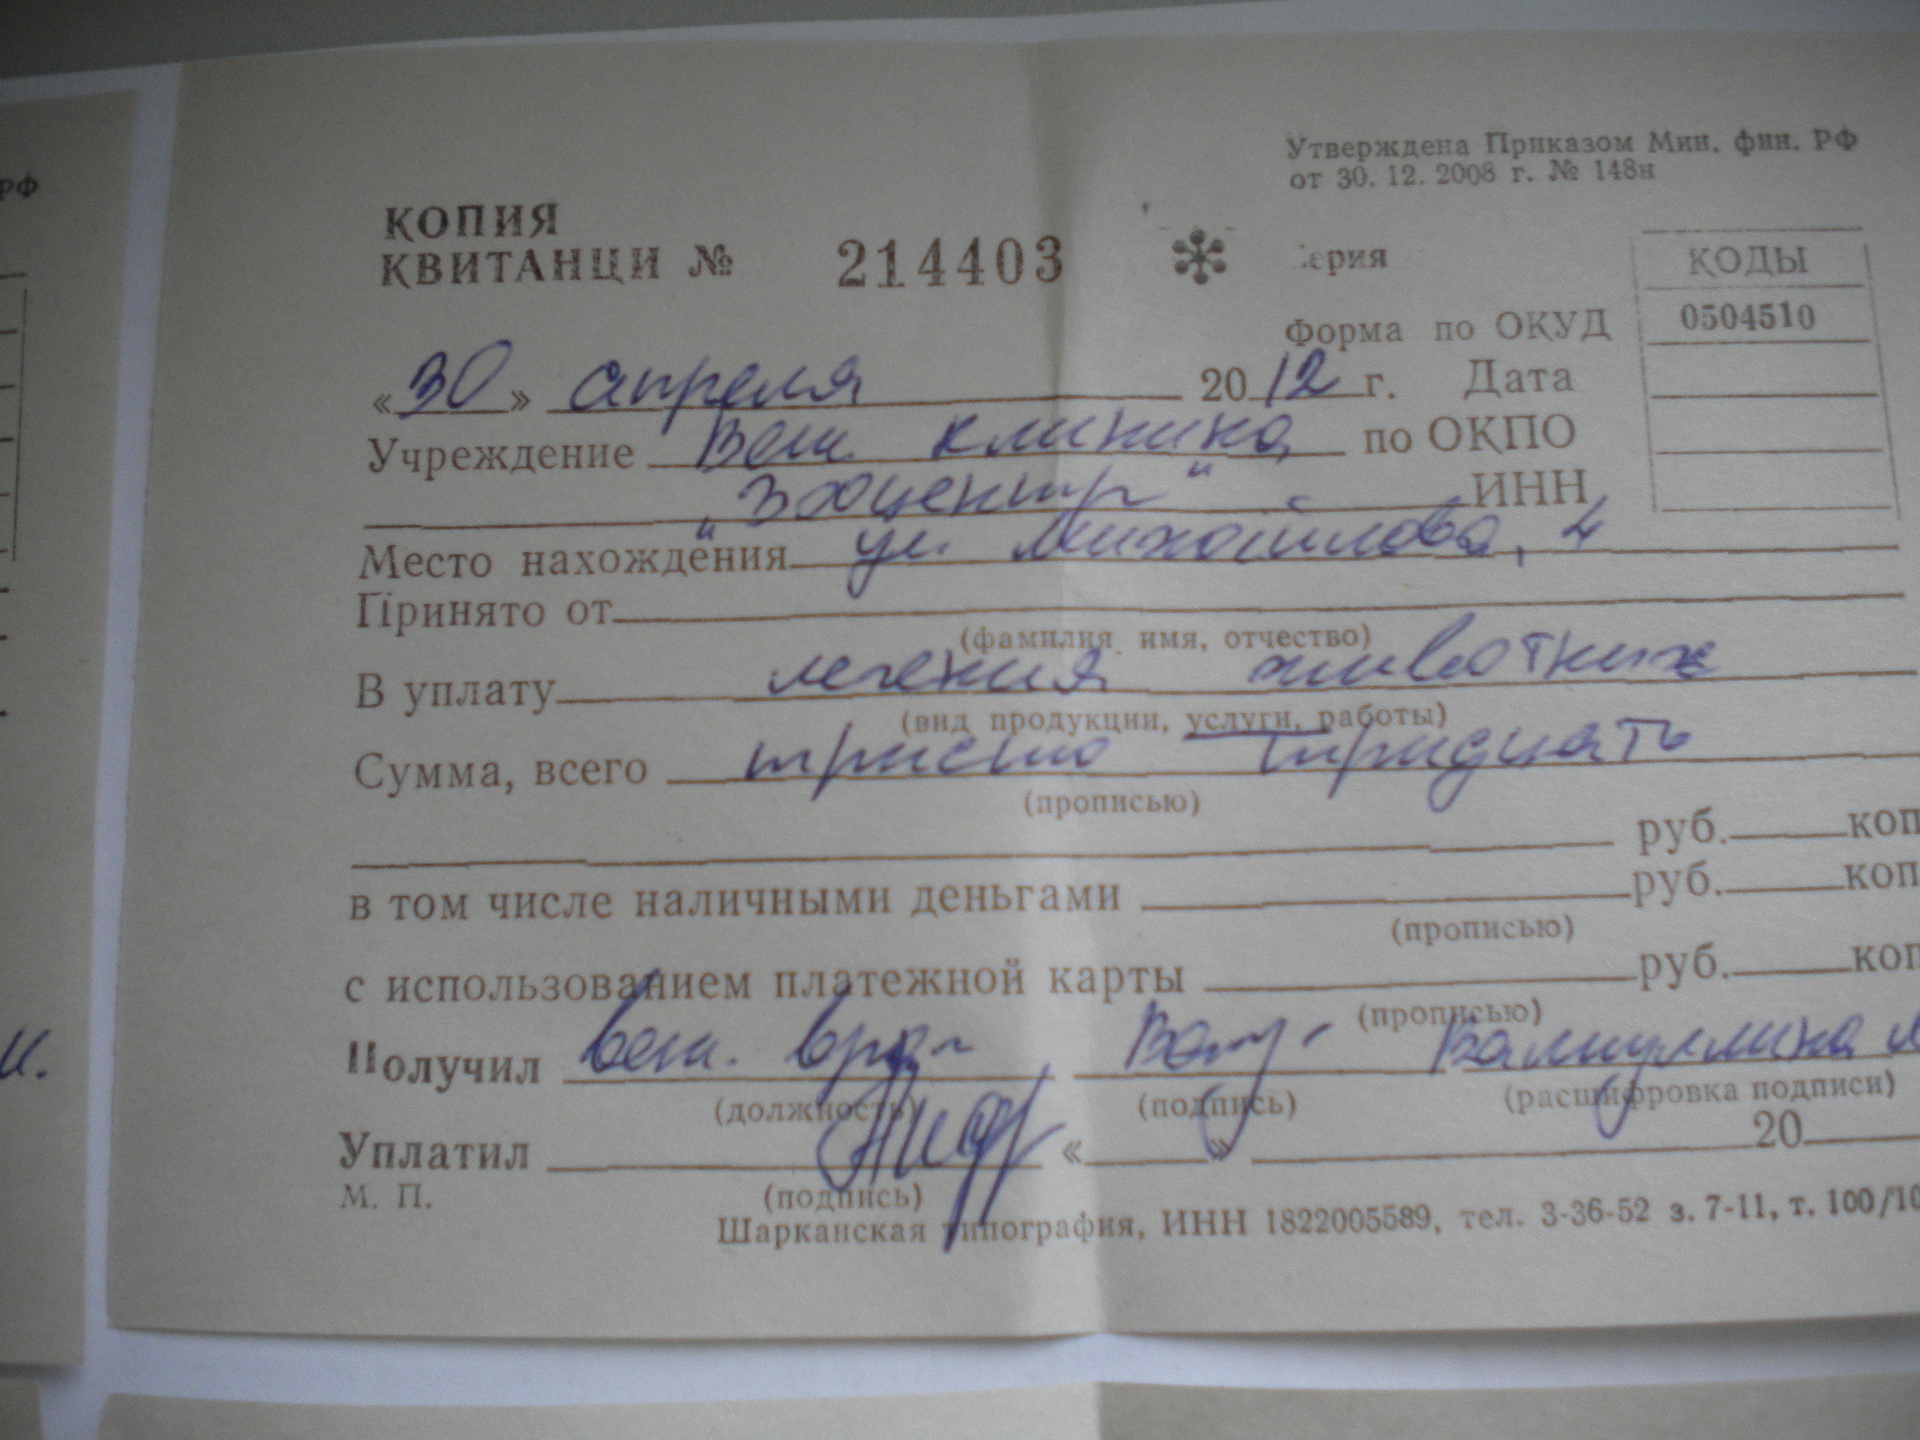 РФ
Утверждена Приказом Мин. фин. РФ
от 30. 12. 2008 г. № 148н
КОПИЯ
КВИТАНЦИ № 214403 ерия
КОДЫ
Форма по ОКУД 0504510
«30» апреля 2012 г. Дата
Учреждение Вет клиника по ОКПО
"Зооцентр" ИНН
Место нахождения ул Михайлова, 4
Принято от
(фамилия имя, отчество)
В уплату лечения животных
(вид продукции, услуги, работы)
Сумма, всего триста тридцать
(прописью)
руб. коп
в том числе наличными деньгами руб. коп
(прописью)
с использованием платежной карты руб. коп
(прописью)
и. Получил вет. вра
(должность) (подпись) (расшифровка подписи)
Уплатил « » 20
М. П. (подпись)
Шарканская типография, ИНН 1822005589, тел. 3-36-52 з. 7-11, т. 100/10